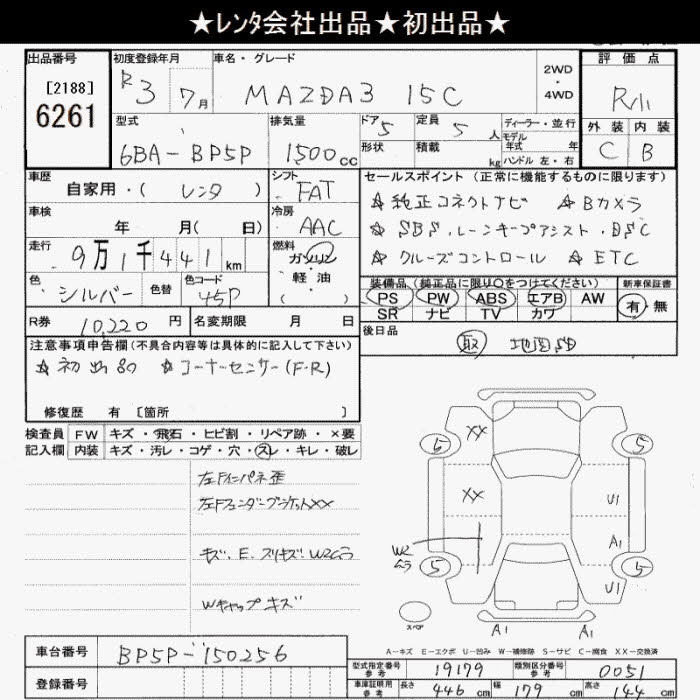 ★レンタ会社出品★初出品★
出品番号 初度登録年月 車名・グレード 2WD・4WD 評価点
[2188]
6261
R3 7月 MAZDA3 15C R/1
型式 排気量 ドア 定員 ディーラー・並行 外装 内装
6BA-BP5P 1500cc 5 5人 モデル年式 年 C B
形状 積載 kg ハンドル 左・右
車歴 シフト セールスポイント (正常に機能するものに限ります)
自家用・( レンタ ) FAT ☆純正コネクトナビ ☆Bカメラ
車検 冷房 ☆SBS.レーンキープアシスト.DSC
年 月( 日) AAC
走行 燃料 ☆クルーズコントロール ☆ETC
9万1千441km ガソリン・軽油 ( )
装備品 (純正品に限り○をつけてください) 新車保証書
色 シルバー 色替 色コード 45P
PS PW ABS エアB AW 有・無
SR ナビ TV カワ
R券 10,220円 名変期限 月 日 後日品
取 地図SD
注意事項申告欄 (不具合内容等は具体的に記入して下さい)
☆初出品 ☆コーナーセンサー(F・R)
修復歴 有 [箇所 ]
検査員 FW キズ・飛石・ヒビ割・リペア跡・×要
記入欄 内装 キズ・汚レ・コゲ・穴・スレ・キレ・破レ
左Fインパネ歪
XX
5 5
左FフェンダーブラケットXX
XX U1
キズ、E、スリキズ W2ムラ
W2 ムラ A1
5 5
U1
Wキャップキズ
スペア A1 A1
A-キズ E-エクボ U-凹み W-補修跡 S-サビ C-腐食 XX-交換済
車台番号 BP5P-150256
型式指定番号 参考 19179 類別区分番号 参考 0051
登録番号
車庫証明用 参考 長さ 446cm 幅 179cm 高さ 144cm